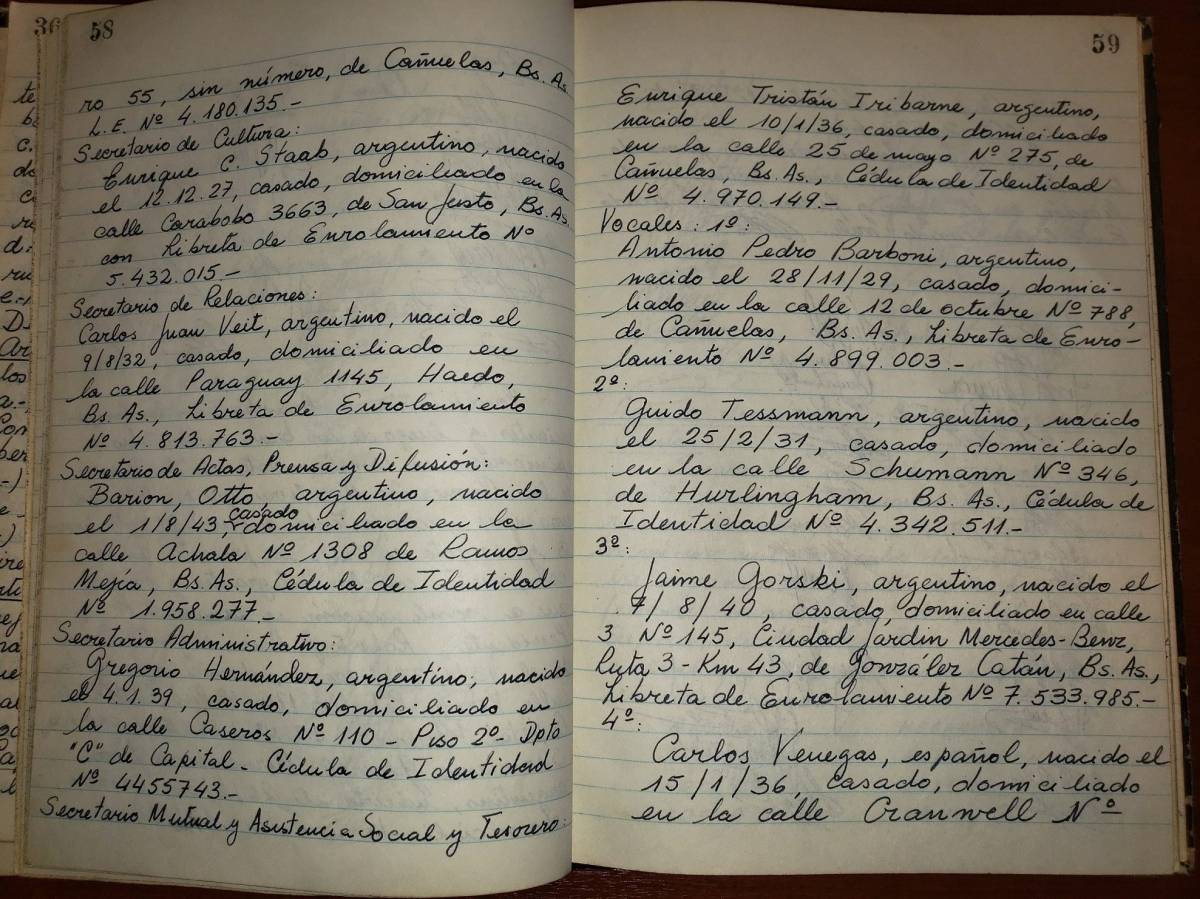 36
58
ro 55, sin número, de Cañuelas, Bs. As.
L.E. Nº 4.180.135.-
Secretario de Cultura:
Enrique C. Staab, argentino, nacido
el 12.12.27, casado, domiciliado en la
calle Carabobo 3663, de San Justo, Bs. As.
con Libreta de Enrolamiento Nº
5.432.015.-
Secretario de Relaciones:
Carlos Juan Veit, argentino, nacido el
9/8/32, casado, domiciliado en
la calle Paraguay 1145, Haedo,
Bs. As., Libreta de Enrolamiento
Nº 4.813.763.-
Secretario de Actas, Prensa y Difusión:
Barion, Otto, argentino, nacido
casado
el 1/8/43, domiciliado en la
calle Achala Nº 1308 de Ramos
Mejía, Bs. As., Cédula de Identidad
Nº 1.958.277.-
Secretario Administrativo:
Gregorio Hernández, argentino, nacido
el 4.1.39, casado, domiciliado en
la calle Caseros Nº 110 - Piso 2º- Dpto
"C" de Capital - Cédula de Identidad
Nº 4455743.-
Secretario Mutual y Asistencia Social y Tesorero:
59
Enrique Tristán Iribarne, argentino,
nacido el 10/1/36, casado, domiciliado
en la calle 25 de mayo Nº 275, de
Cañuelas, Bs. As., Cédula de Identidad
Nº 4.970.149.-
Vocales: 1º:
Antonio Pedro Barboni, argentino,
nacido el 28/11/29, casado, domici-
liado en la calle 12 de octubre Nº 788,
de Cañuelas, Bs. As., Libreta de Enro-
lamiento Nº 4.899.003.-
2º:
Guido Tessmann, argentino, nacido
el 25/2/31, casado, domiciliado
en la calle Schumann Nº 346,
de Hurlingham, Bs. As., Cédula de
Identidad Nº 4.342.511.-
3º:
Jaime Gorski, argentino, nacido el
7/8/40, casado, domiciliado en calle
3 Nº 145, Ciudad Jardin Mercedes-Benz,
Ruta 3 - Km 43, de González Catán, Bs. As.,
Libreta de Enrolamiento Nº 7.533.985.-
4º:
Carlos Venegas, español, nacido el
15/1/36, casado, domiciliado
en la calle Cranwell Nº